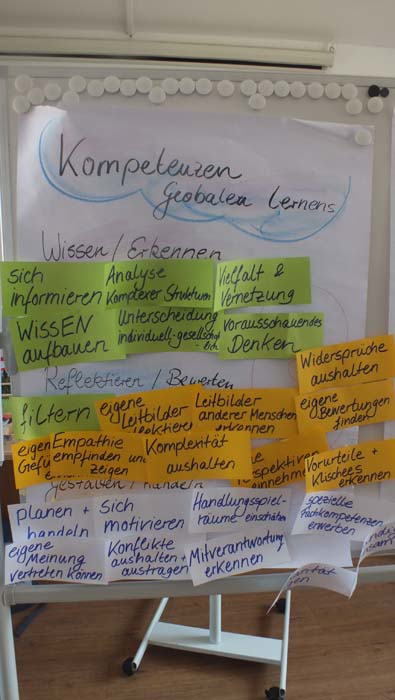 Kompetenzen
Globalen Lernens
Wissen / Erkennen
sich
informieren
Analyse
Komplexer Strukturen
Vielfalt &
Vernetzung
WissEN
aufbauen
Unterscheidung
individuell-gesellschaftl
ich
Vorausschauendes
Denken
Widersprüche
aushalten
Reflektieren / Bewerten
filtern
eigene
Leitbilder
Leitbilder
anderer Menschen
erkennen
eigene
Bewertungen
finden
eigene
Empathie
empfinden und
zeigen
Komplexität
aushalten
Vorurteile +
Klischees
erkennen
Gestalten / Handeln
planen +
handeln
Sich
motivieren
Handlungsspiel-
räume einschätzen
spezielle
Fachkompetenzen
erwerben
eigene
Meinung
vertreten können
Konflikte
aushalten +
austragen
Mitverantwortung
erkennen